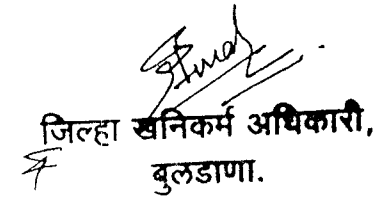 जिल्हा खनिकर्म अधिकारी,
बुलडाणा.